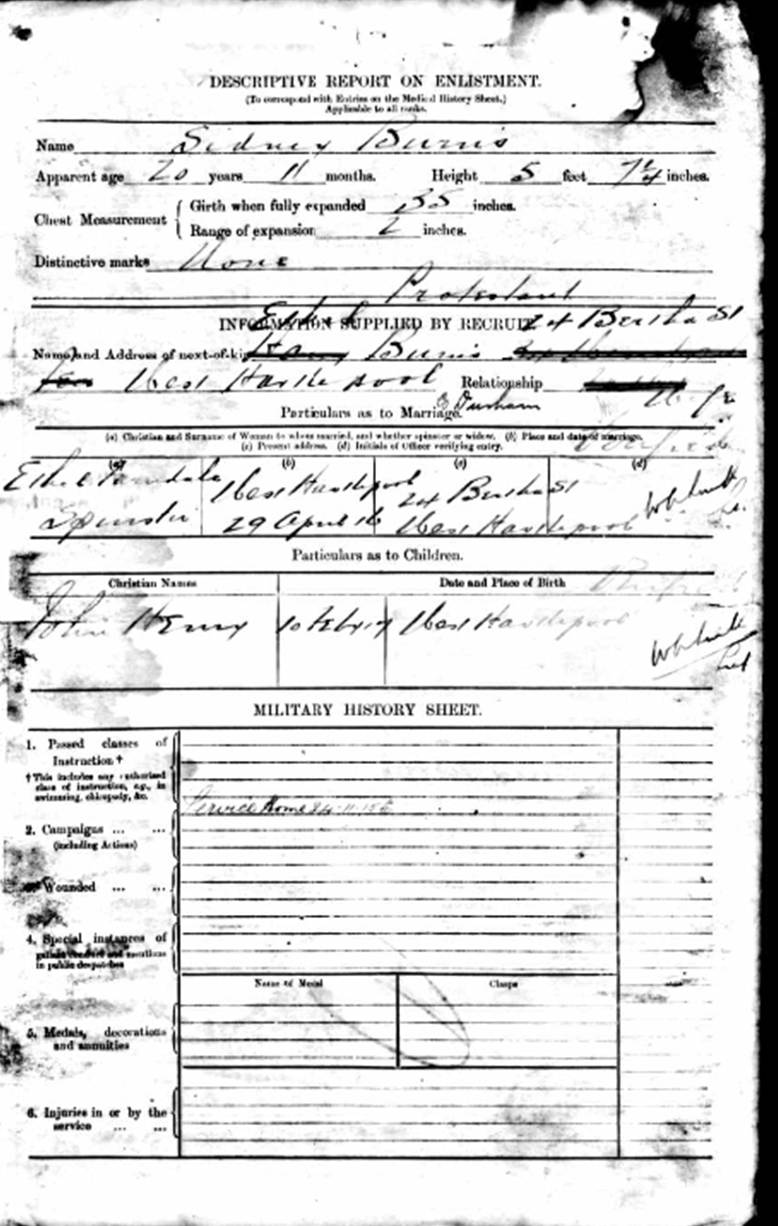 DESCRIPTIVE REPORT ON ENLISTMENT.
(To correspond with Entries on the Medical History Sheet.)
Applicable to all ranks.
Name Sidney Burns
Apparent age 20 years 11 months. Height 5 feet 7¼ inches.
Chest Measurement { Girth when fully expanded 35 inches.
Range of expansion 2 inches.
Distinctive marks None
Protestant
INFORMATION SUPPLIED BY RECRUIT.
Ethel 24 Bertha St
Name and Address of next-of-kin Harry Burns
West Hartlepool Relationship Wife
Co Durham
Particulars as to Marriage.
(a) Christian and Surname of Woman to whom married, and whether spinster or widow. (b) Place and date of marriage.
(c) Present address. (d) Initials of Officer verifying entry.
(a) (b) (c) (d)
Ethel West Hartlepool 24 Bertha St
Spinster 29 April 16 West Hartlepool
Particulars as to Children.
Christian Names Date and Place of Birth
John Henry 10 Feb 17 West Hartlepool
MILITARY HISTORY SHEET.
1. Passed classes of
Instruction †
† This includes any authorised
class of instruction, e.g., in
swimming, chiropody, &c.
Service Home 24.11.15
2. Campaigns ... ...
(including Actions)
3. Wounded ... ...
4. Special instances of
gallant conduct and mentions
in public despatches
Name of Medal Clasps
5. Medals, decorations
and annuities
6. Injuries in or by the
service ... ...